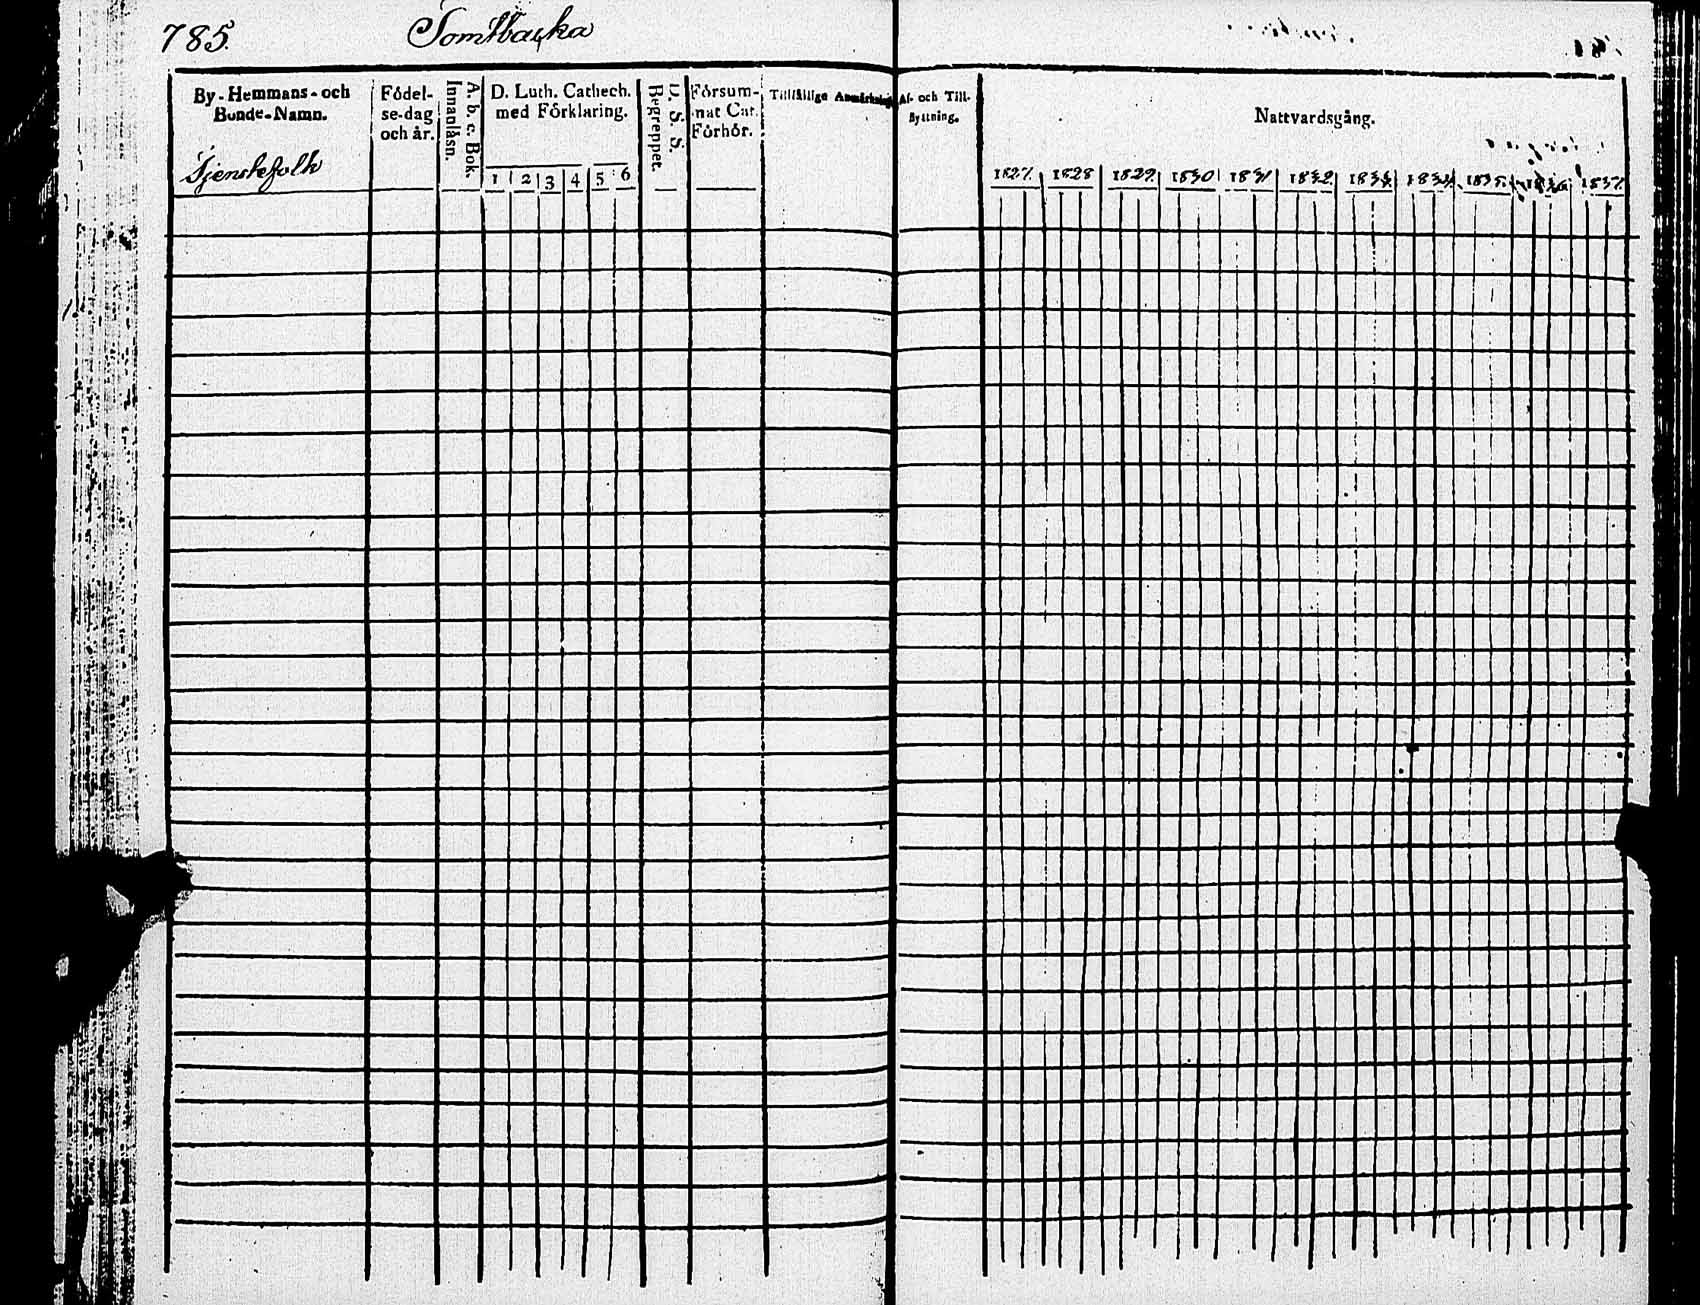 785. Tomtbacka
By-Hemmans-och
Bonde-Namn.
Tjenstefolk
Födel-
se-dag
och år.
A. b. c. Bok.
Innanläsn.
D. Luth. Cathech.
med Förklaring.
1 2 3 4 5 6
D. S. S.
Begreppet.
Försum-
nat Cat.
Förhör.
Tillfällige Anmärkning
Af- och Till-
flyttning.
Nattvardsgång.
1827. 1828 1829. 1830 1831 1832. 1833. 1834. 1835. 1836. 1837.